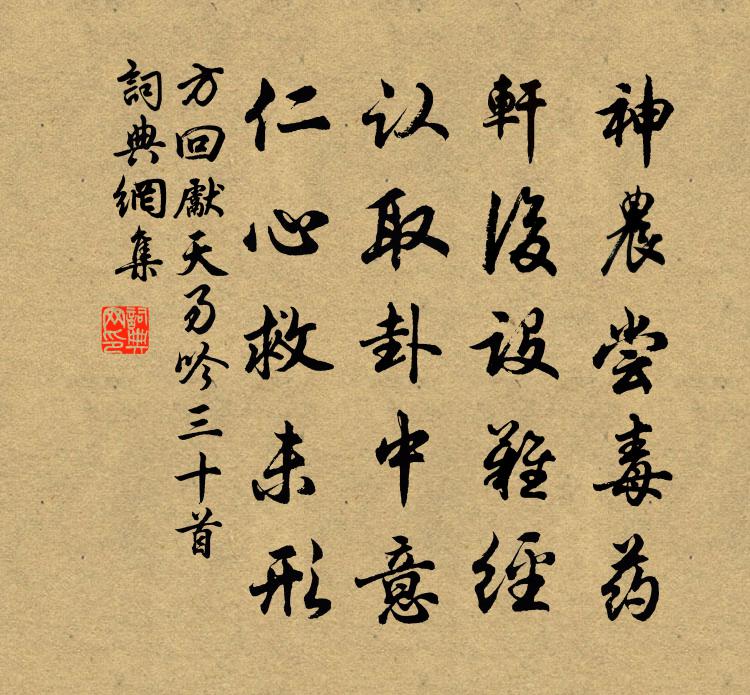 神農尝毒药
軒後設難經
认取卦中意
仁心救未形
方回獻天易吟三十首
詞典網集
詞典网印